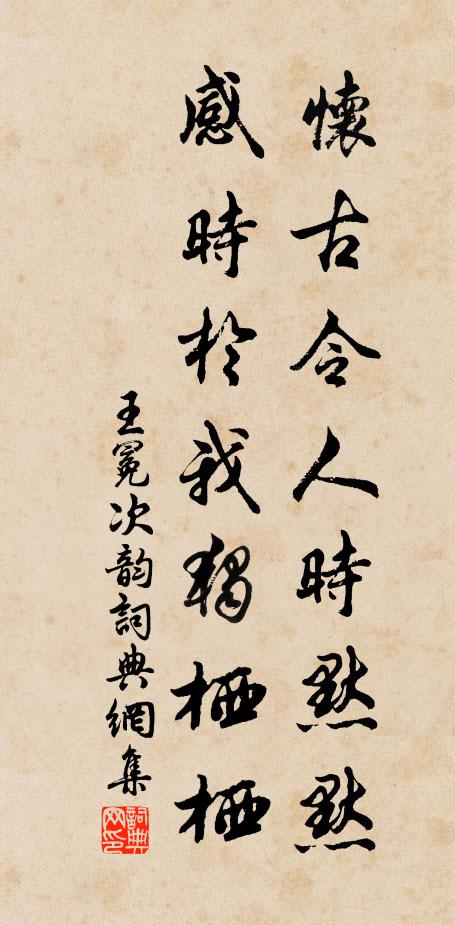 懷古令人時默默
感時於我獨栖栖
王冕次韵詞典網集
詞典網印